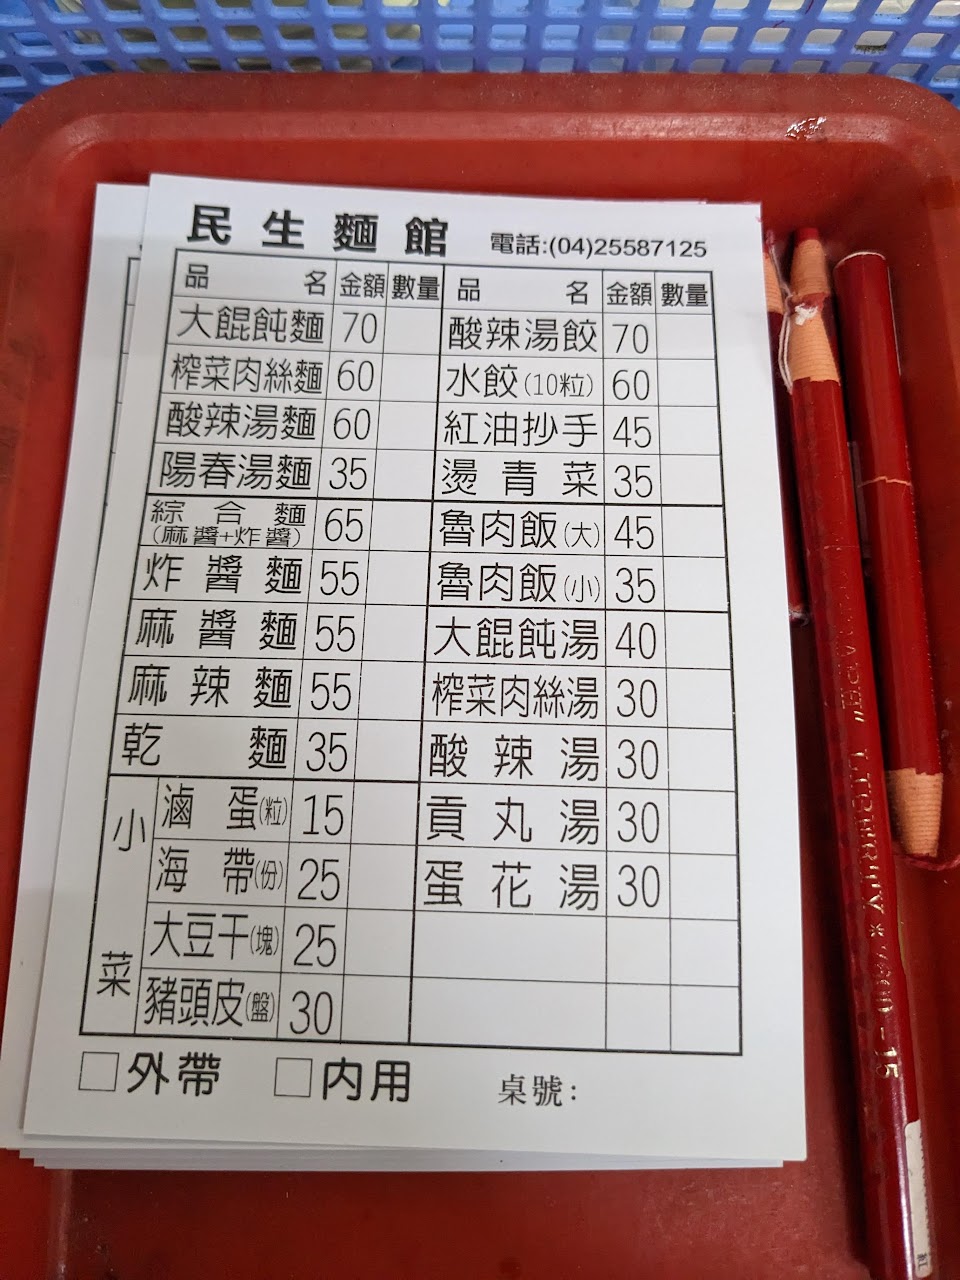 民生麵館 電話:(04)25587125
品名 金額 數量 品名 金額 數量
大餛飩麵 70 酸辣湯餃 70
榨菜肉絲麵 60 水餃(10粒) 60
酸辣湯麵 60 紅油抄手 45
陽春湯麵 35 燙青菜 35
綜合麵(麻醬+炸醬) 65 魯肉飯(大) 45
炸醬麵 55 魯肉飯(小) 35
麻醬麵 55 大餛飩湯 40
麻辣麵 55 榨菜肉絲湯 30
乾麵 35 酸辣湯 30
小菜 滷蛋(粒) 15 貢丸湯 30
海帶(份) 25 蛋花湯 30
大豆干(塊) 25
豬頭皮(盤) 30
□外帶 □內用 桌號:
LITBERTY * 7600-15